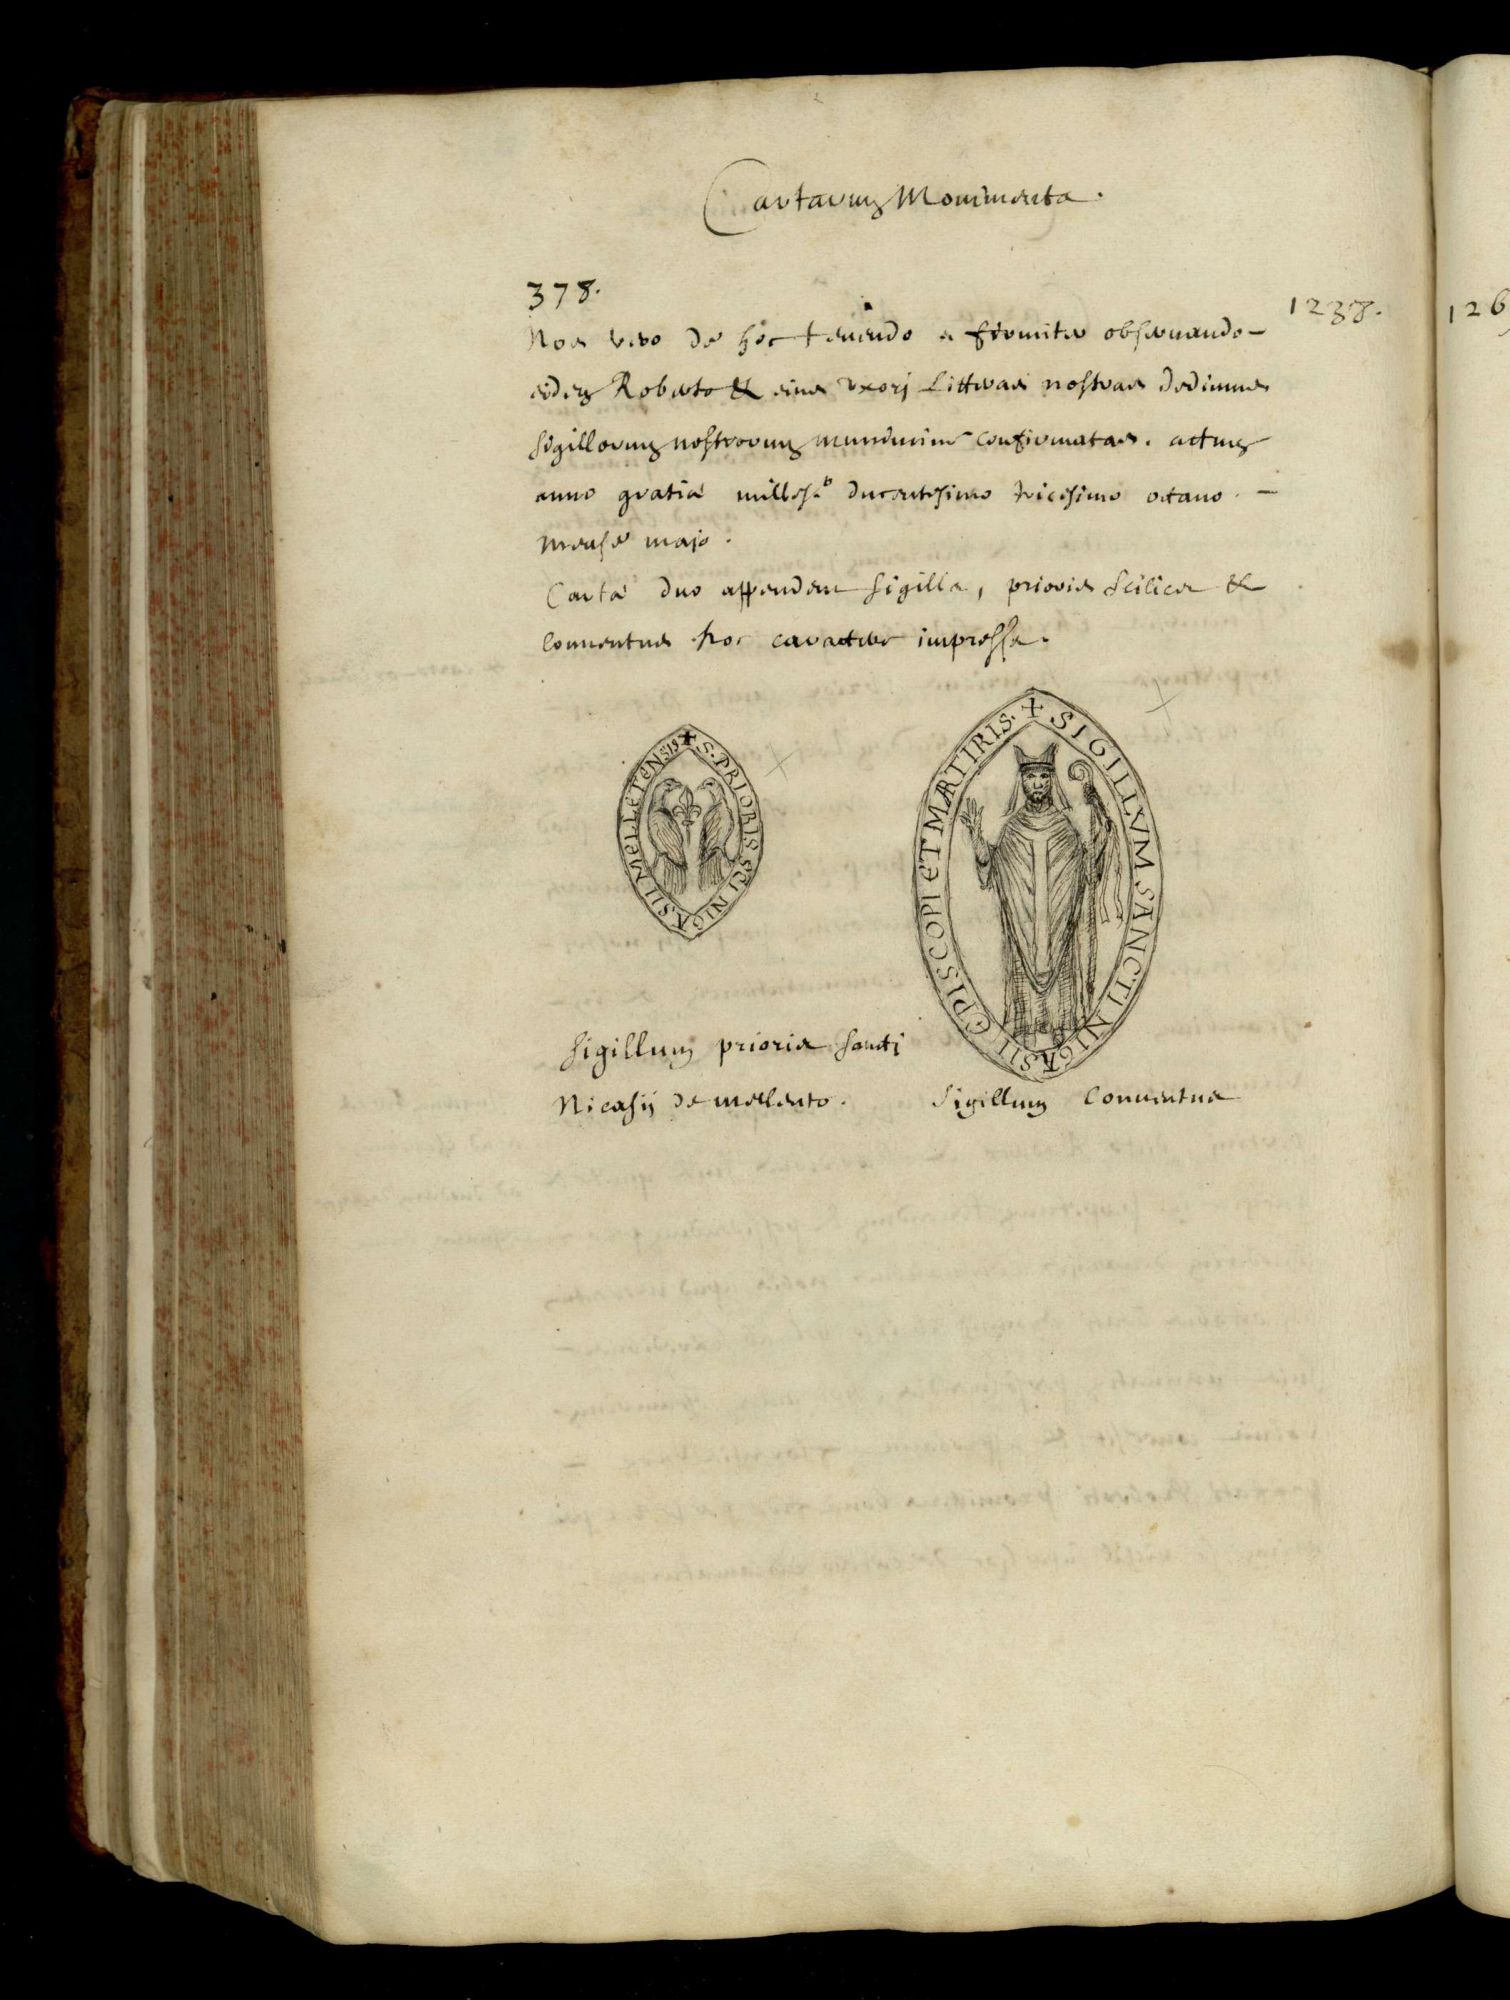 Cartarum Monimenta.
378.
1238.
126
Nos vero de hoc tenendo & firmiter obseruando
eidem Roberto & eius vxorj Litteras nostras dedimus
sigillorum nostrorum munimine confirmatas. actum
anno gratiæ milles.º ducentesimo tricesimo octauo.
mense majo.
Cartæ duo appendent sigilla, prioris scilicet &
conuentus hoc caractere impressa.
✝ S. PRIORIS SCI NIGASII MELLETENSIS
✝ SIGILLVM SANCTI NIGASII EPISCOPI ET MARTIRIS.
Sigillum prioris sanctj
Nicasij de mellento.
Sigillum Conuentus